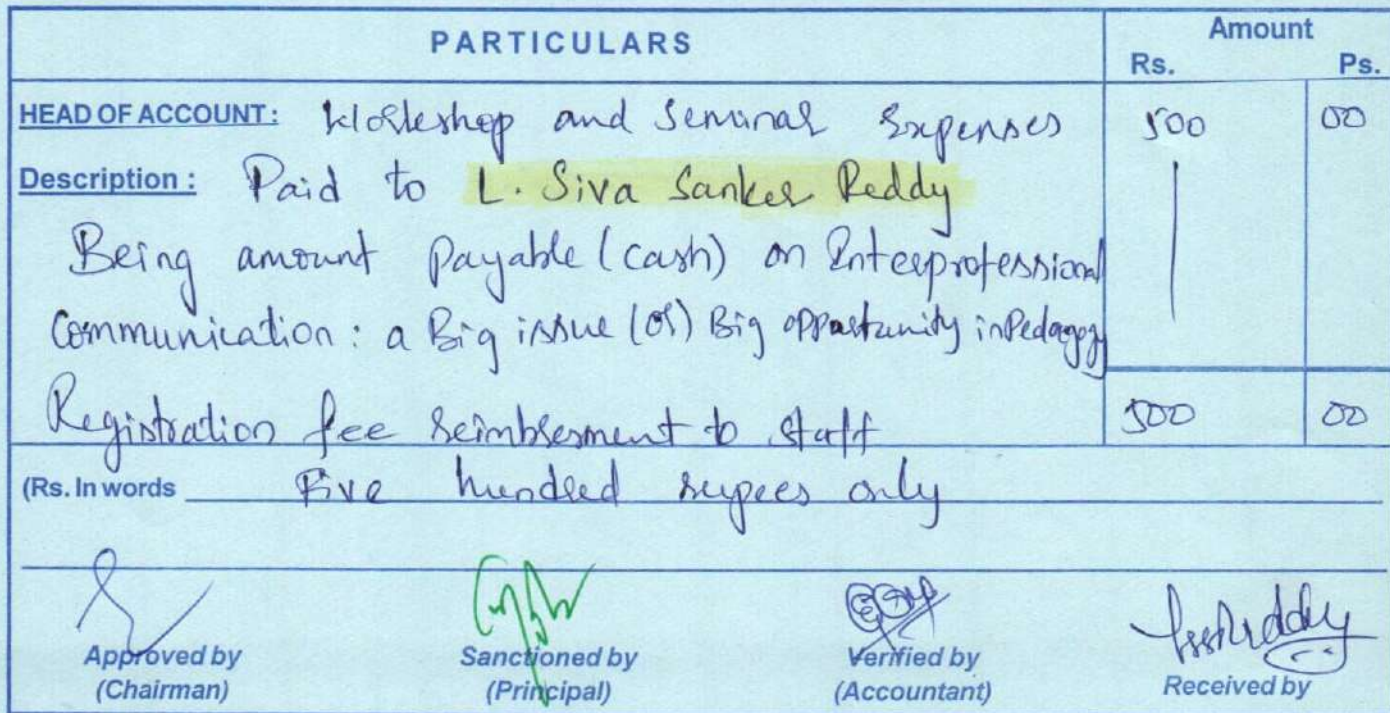 PARTICULARS
Amount
Rs. Ps.
HEAD OF ACCOUNT: Workshop and Seminar Expenses 500 00
Description: Paid to L. Siva Sanker Reddy
Being amount payable (cash) on Interprofessional
Communication: a Big issue (or) Big opportunity in Pedagogy
Registration fee reimbresment to staff 500 00
(Rs. In words Five hundred rupees only
Approved by Sanctioned by Verified by Received by
(Chairman) (Principal) (Accountant)